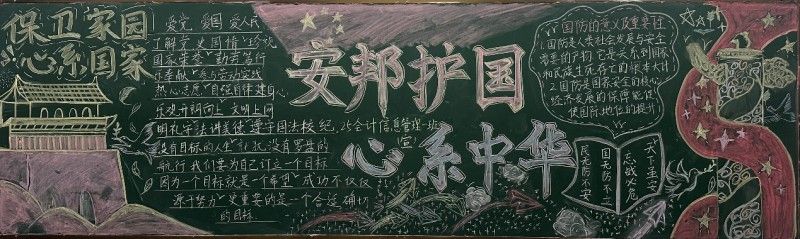 保卫家园
心系国家
爱党 爱国 爱人民
了解党史国情 珍视
国家荣誉 勤劳笃行
乐奉献 主动劳动实践
热心志愿 自强自律健身心
乐观开朗向上 文明上网
明礼守法讲美德 遵守国法校纪
没有目标的人生 计比没有罗盘的
航行 我们要为自己订立一个目标
因为一个目标就是一个希望 成功不仅仅
源于努力 更重要的是一个合适确切
的目标
安邦护国
心系中华
25会计信息管理一班
宣
国防的意义及重要性
1.国防是人类社会发展与安全
需要的产物 它是关系到国家
和民族生死存亡的根本大计
2.国防是国家安全的核心
经济发展的保障能促
使国际地位的提升
天下虽安
忘战必危
国无防不立
民无防不安